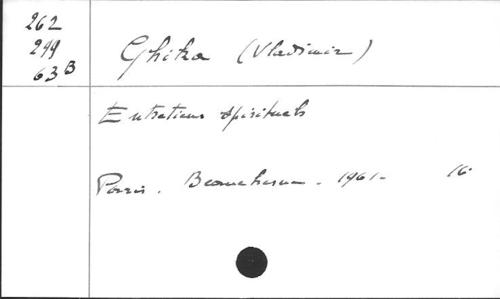 262
299
63 B
Ghika (Vladimir)
Entretiens spirituels
Paris. Beauchesne. 1961- 16.